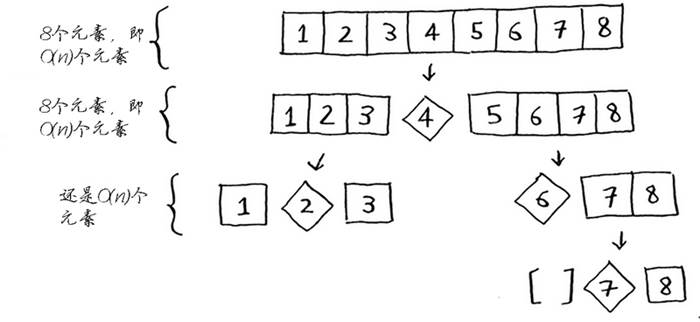 8个元素，即
O(n)个元素
1 2 3 4 5 6 7 8
8个元素，即
O(n)个元素
1 2 3 4 5 6 7 8
还是O(n)个
元素
1 2 3 6 7 8
[ ] 7 8